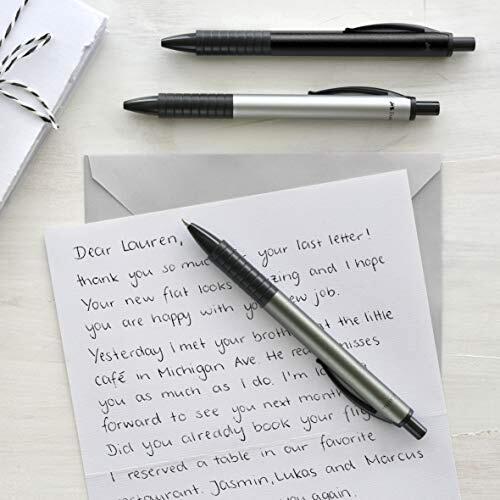 Dear Lauren,
thank you so much your last letter!
Your new flat looks zing and I hope
you are happy with you ew job.
Yesterday I met your broth at the little
café in Michigan Ave. He rea misses
you as much as I do. I'm lo
forward to see you next mont
Did you already book your flig
I reserved a table in our favorite
estaurant. Jasmin, Lukas and Marcus
you again.